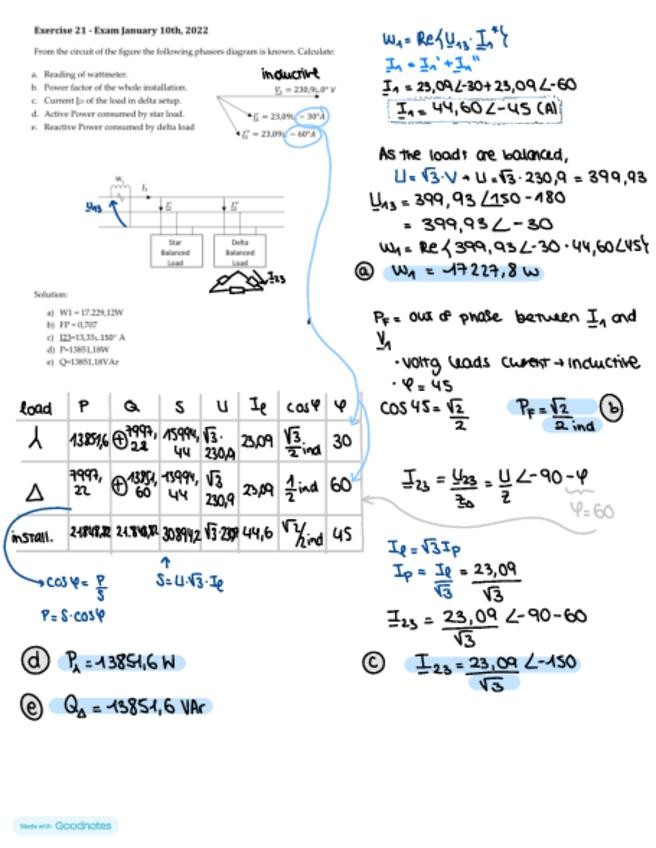 Exercise 21 - Exam January 10th, 2022
From the circuit of the figure the following phasors diagram is known. Calculate:
a. Reading of wattmeter.
b. Power factor of the whole installation.
c. Current I23 of the load in delta setup.
d. Active Power consumed by star load.
e. Reactive Power consumed by delta load
inductive
V1 = 230,9∟0° V
I1' = 23,09∟-30°A
I1'' = 23,09∟-60°A
W1
I1
U13
I1'
I1''
Star Balanced Load
Delta Balanced Load
I23
Solution:
a) W1= 17.229,12W
b) FP = 0,707
c) I23=13,33∟150° A
d) P=13851,18W
e) Q=13851,18VAr
W1 = Re{U13 · I1*}
I1 = I1' + I1''
I1 = 23,09∠-30+23,09∠-60
I1 = 44,60∠-45 (A)
As the loads are balanced,
U = √3·V → U = √3 · 230,9 = 399,93
U13 = 399,93 ∠150 - 180
= 399,93 ∠-30
W1 = Re{399,93∠-30 · 44,60∠45}
a W1 = 17227,8 W
PF = out of phase between I1 and V1
· voltg leads current → inductive
· φ = 45
cos 45 = √2/2 PF = √2/2 ind b
load P Q S U Iℓ cosφ φ
⅄ 13851,6 ⊕7997,22 15994,44 √3·230,9 23,09 √3/2 ind 30
Δ 7997,22 ⊕13851,60 15994,44 √3 230,9 23,09 1/2 ind 60
install. 21848,82 21.848,82 30894,2 √3·230,9 44,6 √2/2 ind 45
cosφ = P/S
P = S·cosφ
S=U·√3·Iℓ
I23 = U23/Z = U/Z ∠-90-φ
φ=60
Iℓ = √3 Ip
Ip = Iℓ/√3 = 23,09/√3
I23 = 23,09/√3 ∠-90-60
c I23 = 23,09/√3 ∠-150
d P⅄ = 13851,6 W
e QΔ = 13851,6 VAr
Made with Goodnotes